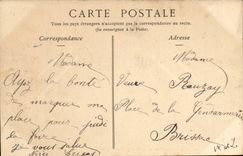 CARTE POSTALE
Tous les pays étrangers n'acceptent pas la correspondance au recto.
(Se renseigner à la Poste).
Correspondance
Adresse
Madame
Ayez la bonté
de marquer ma
place pour jeudi
la foire
je vous salue
Madame
Veuve Rauzay
Place de la Gendarmerie
Brissac